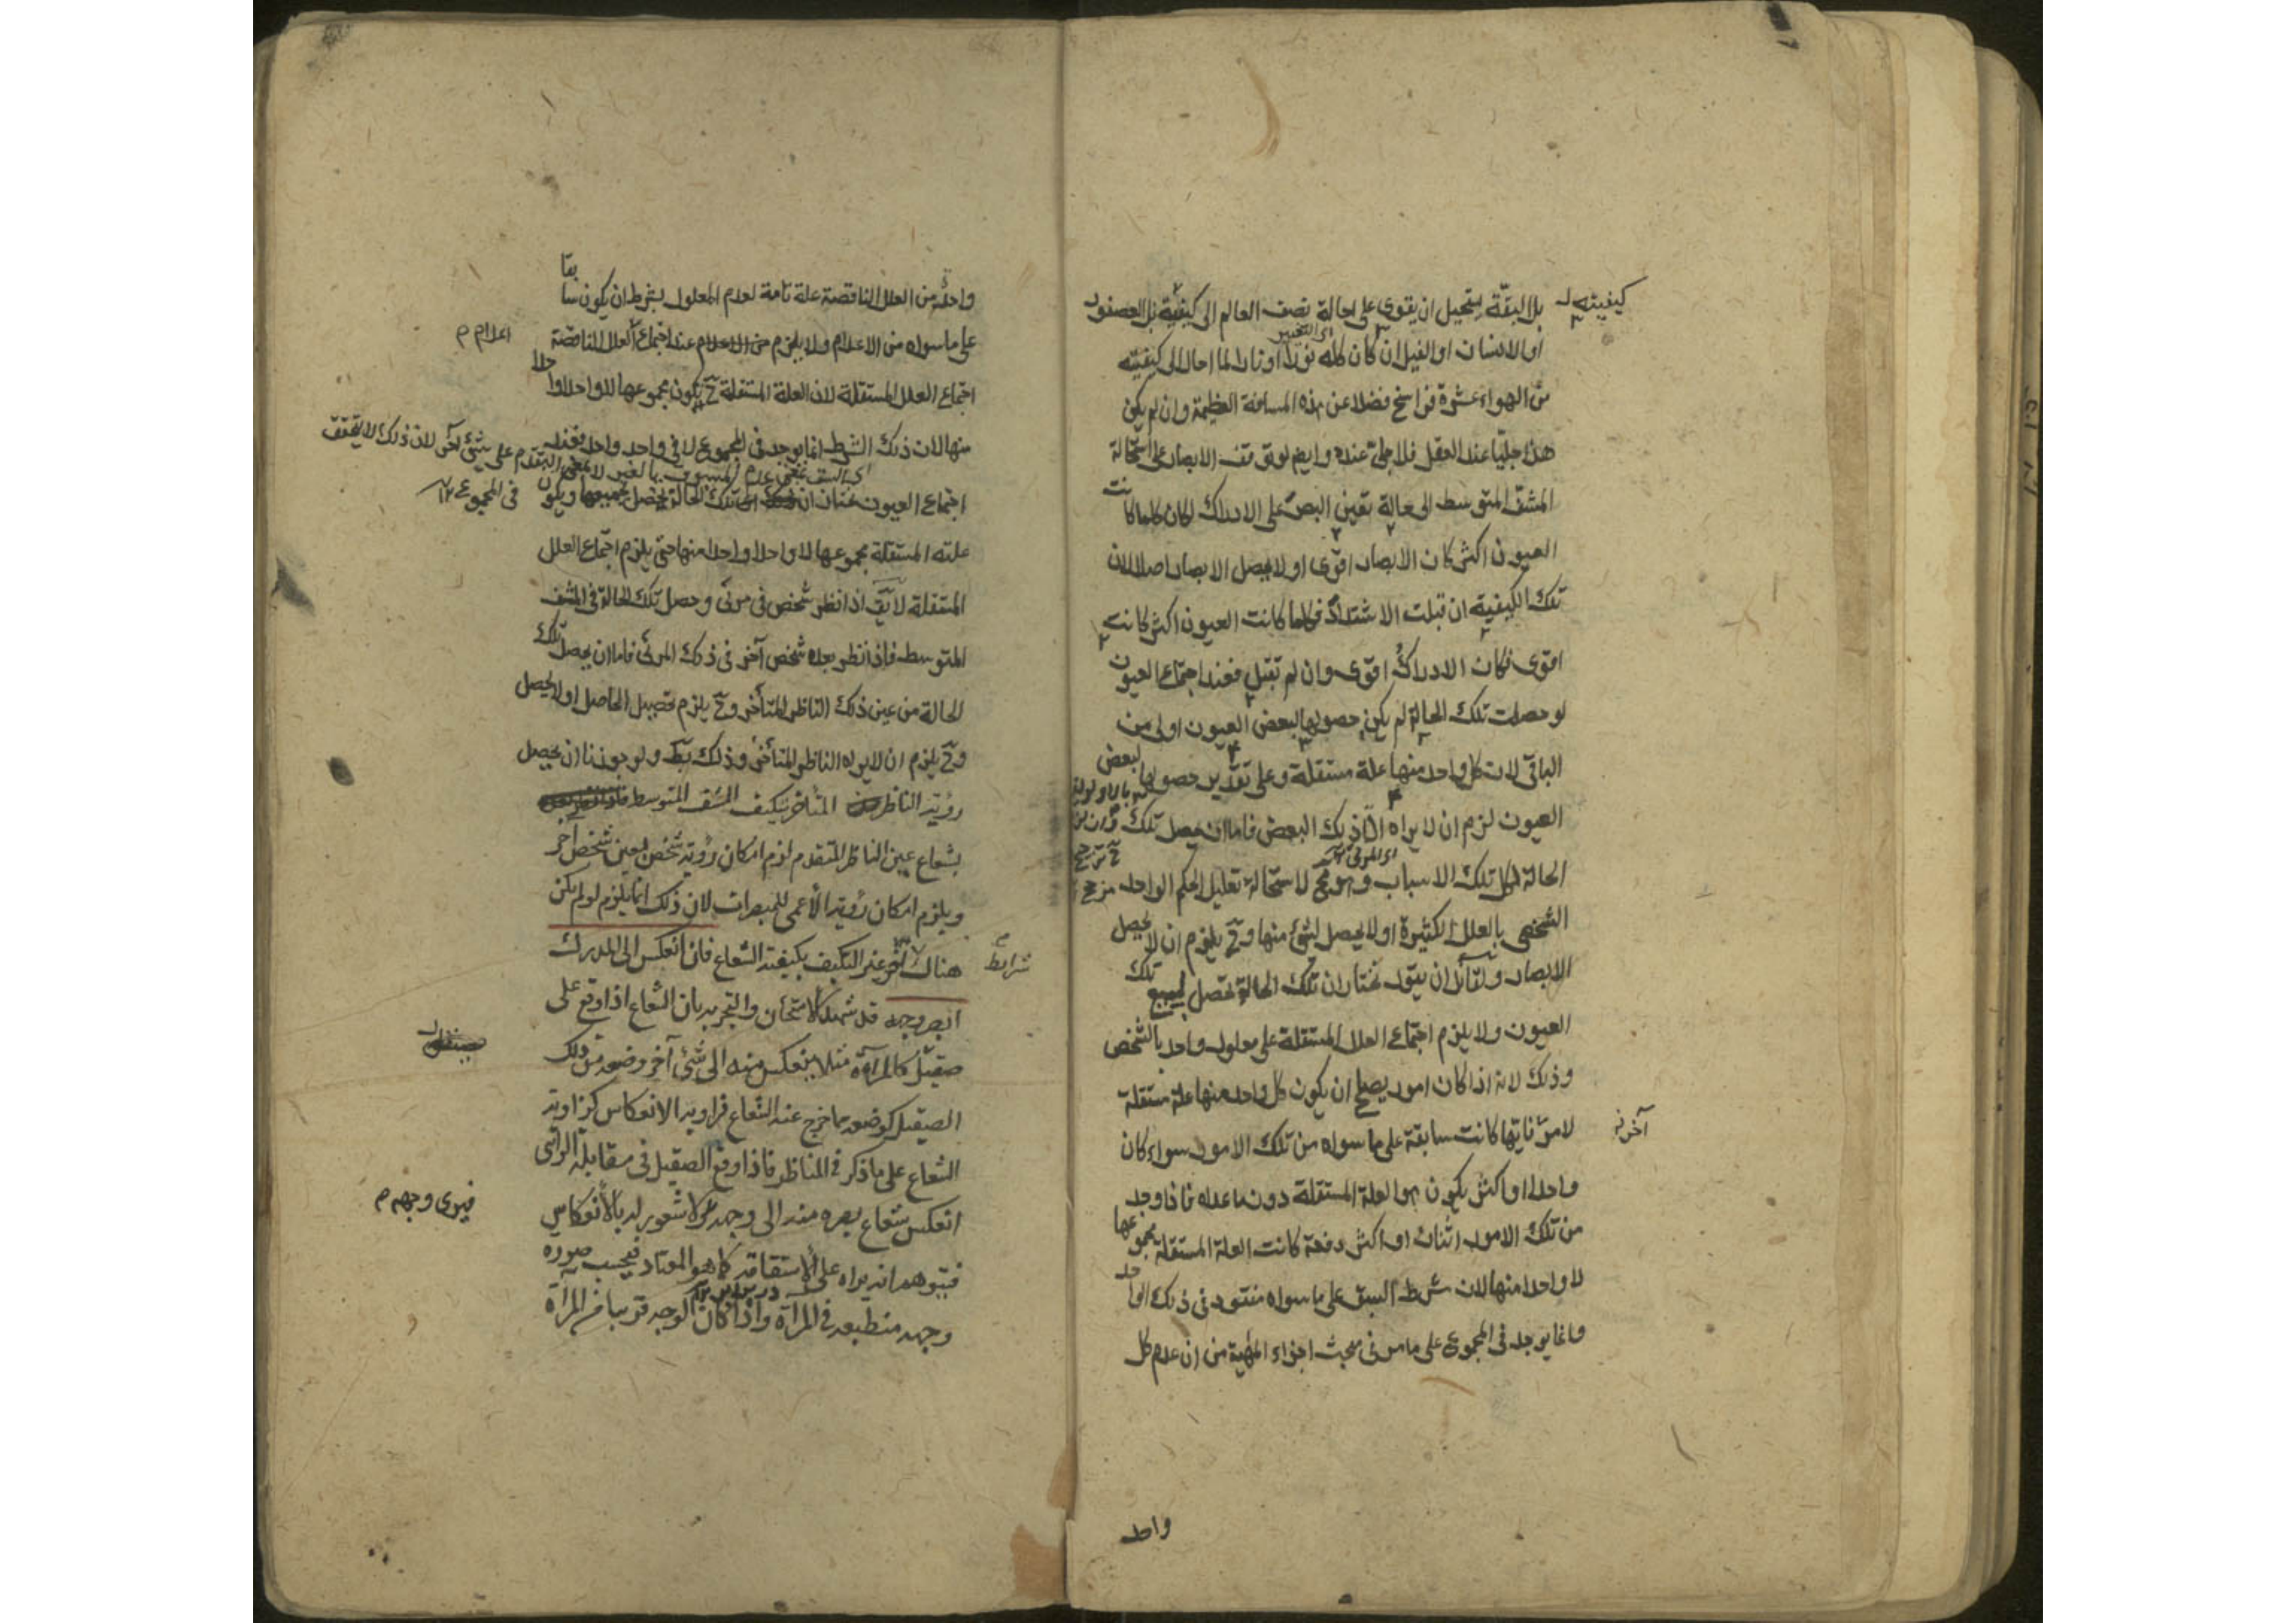 بل البقّة يستحيل ان يقوى على احالة نصف العالم الى كيفية بل العصفور
كيفيته
او الانسان او الفيل ان كان كله نورا او نارا لما احال الى كيفيته
من الهواء عشرة فراسخ فضلا عن هذه المسافة العظيمة وان لم يكن
هذا جليّا عند العقل فلا جلىّ عنده وايضا لو توقف الابصار على استحالة
المشف المتوسط الى حالة تعين البصر على الادراك لكان كلما كانت
العيون اكثر كان الابصار اقوى او لا يحصل الابصار اصلا لان
تلك الكيفية ان قبلت الاشتداد فكلما كانت العيون اكثر كانت
اقوى فكان الادراك اقوى وان لم تقبل فعند اجتماع العيون
لو حصلت تلك الحالة لم يكن حصولها لبعض العيون اولى من
الباقى لان كل واحد منها علة مستقلة وعلى تقدير حصولها لبعض
العيون لزم ان لا يراه الا ذلك البعض فاما ان يحصل تلك
الحالة لكل تلك الاسباب وهو مح لاستحالة تعليل الحكم الواحد
الشخصى بالعلل الكثيرة او لا يحصل لشئ منها وح يلزم ان لا يحصل
الابصار ولقائل ان يقول نختار ان تلك الحالة تحصل لجميع تلك
العيون ولا يلزم اجتماع العلل المستقلة على معلول واحد بالشخص
وذلك لانه اذا كان امور يصلح ان يكون كل واحد منها علة مستقلة
لامر فايتها كانت سابقة على ما سواه من تلك الامور سواء كان
آخر
واحدا او اكثر يكون هو العلة المستقلة دون ما عداه فاذا وجد
من تلك الامور اثنان او اكثر دفعة كانت العلة المستقلة مجموعها
لا واحدا منها لان شرط السبق على ما سواه مفقود فى ذلك الواحد
وانما يوجد فى المجموع على ما مر فى مبحث اجزاء المهية من ان عدم كل
واحد
واحد من العلل الناقصة علة تامة لعدم المعلول بشرط ان يكون سابقا
على ما سواه من الاعدام ولا يلزم من الاعدام عند اجتماع العلل الناقصة
اعدام م
اجتماع العلل المستقلة لان العلة المستقلة ح يكون مجموعها لا واحدا واحدا
منها لان ذلك الشرط انما يوجد فى المجموع لا فى واحد واحد فعند
اجتماع العيون نختار ان تلك الحالة تحصل بجميعها ويكون
فى المجموع ١٢
علته المستقلة مجموعها لا واحدا واحدا منها حتى يلزم اجتماع العلل
المستقلة لا يق اذا نظر شخص فى مرئى وحصل تلك الحالة فى المشف
المتوسط فاذا نظر بعده شخص آخر فى ذلك المرئى فاما ان يحصل تلك
الحالة من عين ذلك الناظر المتأخر وح يلزم تحصيل الحاصل او لا يحصل
وح يلزم ان لا يراه الناظر المتأخر وذلك بط ولو جوزنا ان يحصل
رؤية الناظر المتأخر بتكيف المشف المتوسط
بشعاع عين الناظر المتقدم لزم امكان رؤية شخص بعين شخص آخر
ويلزم امكان رؤية الأعمى للمبصرات لان ذلك انما يلزم لو لم يكن
هناك آخر غير التكيف بكيفية الشعاع فان انعكس الى المدرك
شرايط
ابصر وجهه قد شهد الامتحان والتجربه بان الشعاع اذا وقع على
صقيل كالمرآة مثلا ينعكس منه الى شئ آخر وضعه من ذلك
الصقيل كوضعه مما خرج عنه الشعاع فزاوية الانعكاس كزاوية
الشعاع على ما ذكر فى المناظر فاذا وقع الصقيل فى مقابلة الرائى
انعكس شعاع بصره منه الى وجهه ولا شعور له بالانعكاس
فيرى وجهه م
فيتوهم انه يراه على الاستقامة كما هو المعتاد فيحسب صورة
وجهه منطبعة فى المرآة واذا كان الوجه قريبا من المرآة